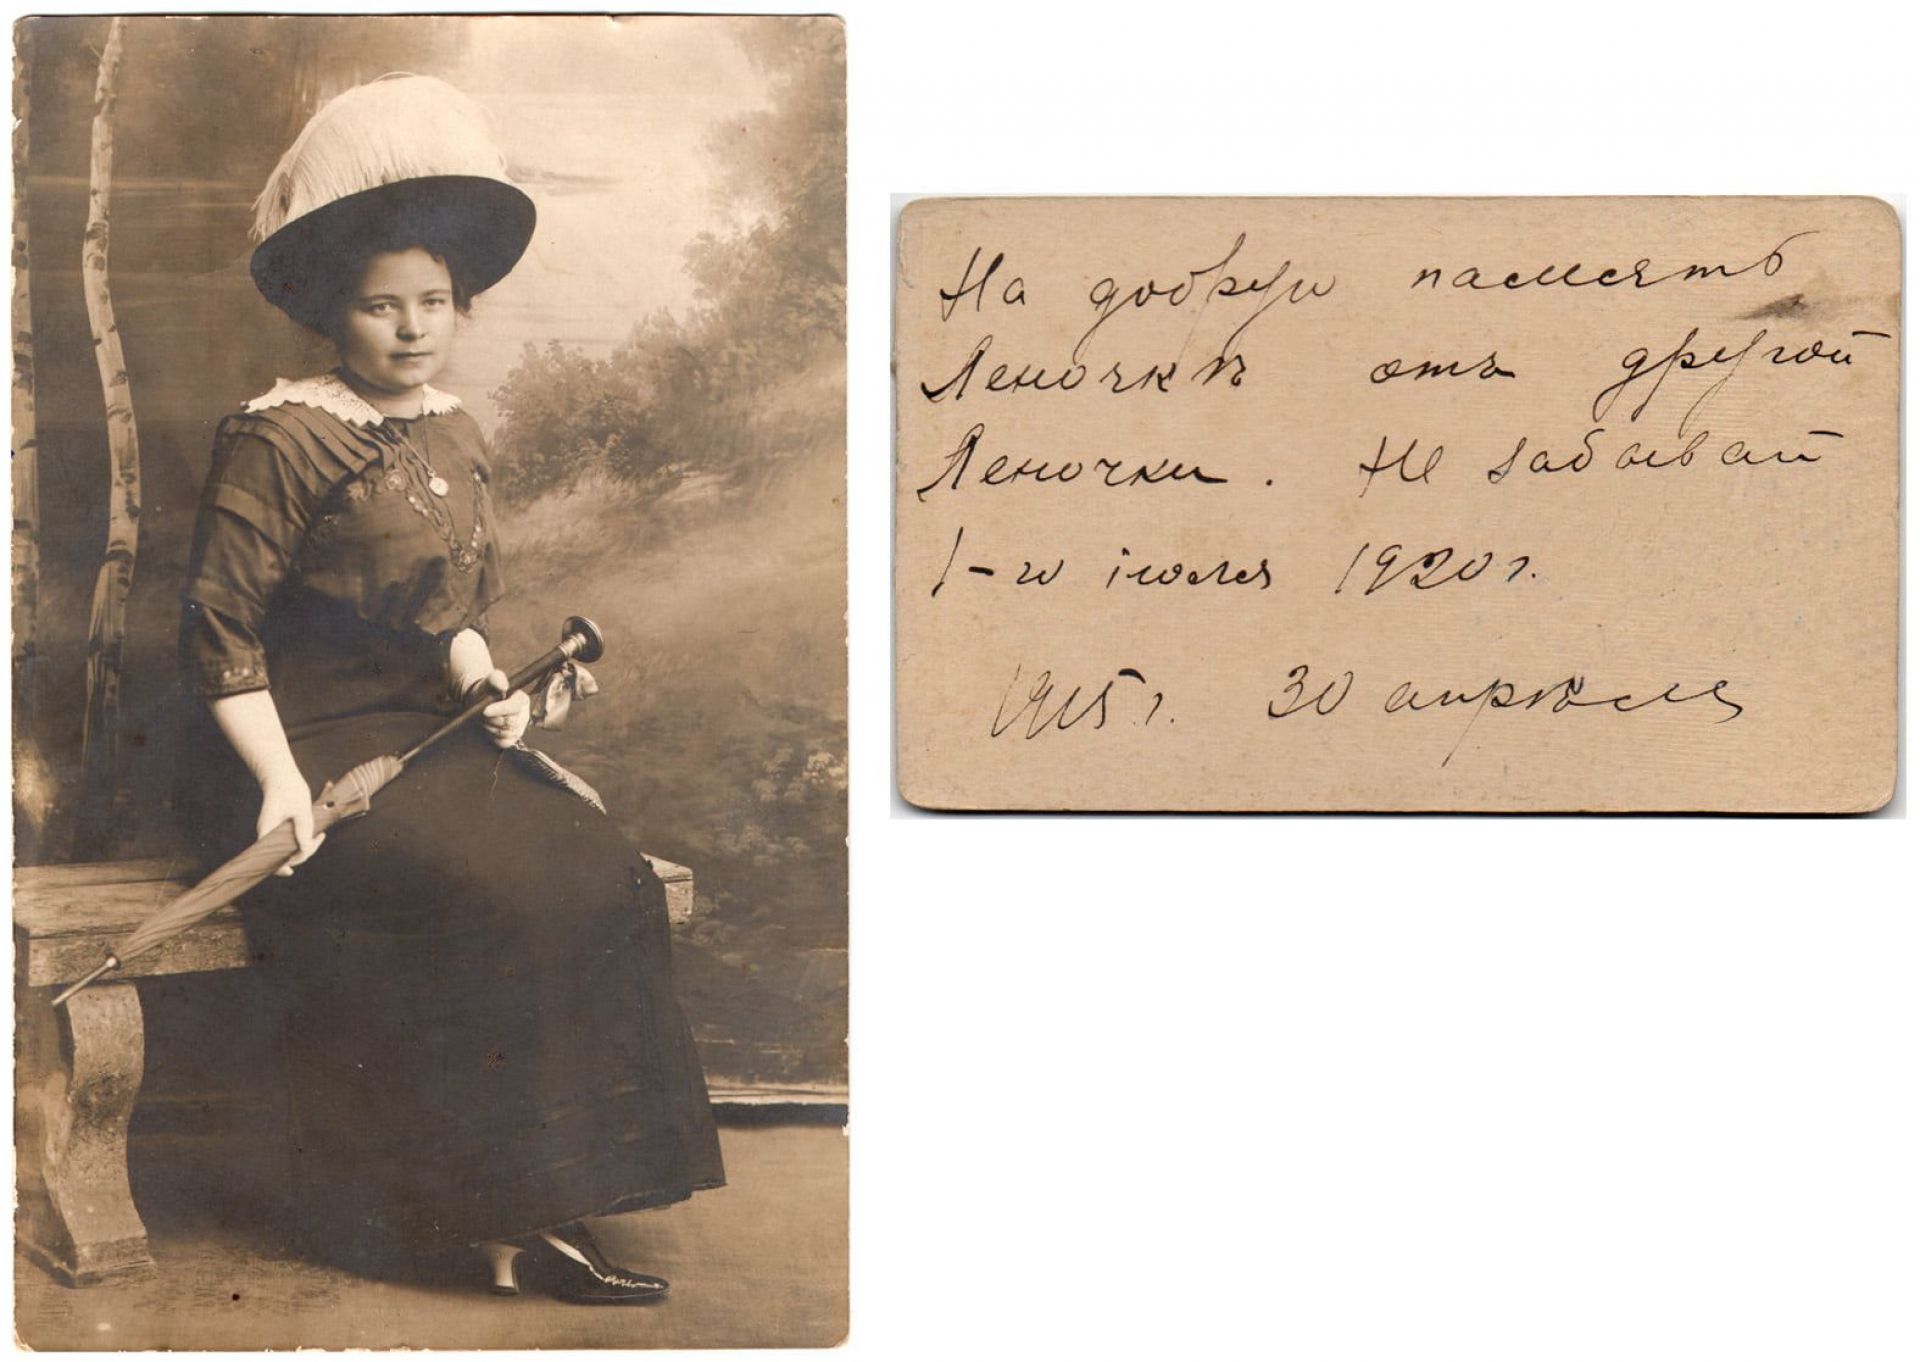 На добрую память
Леночкѣ отъ другой
Леночки. Не забывай
1-го іюля 1920 г.
1915 г. 30 апрѣля